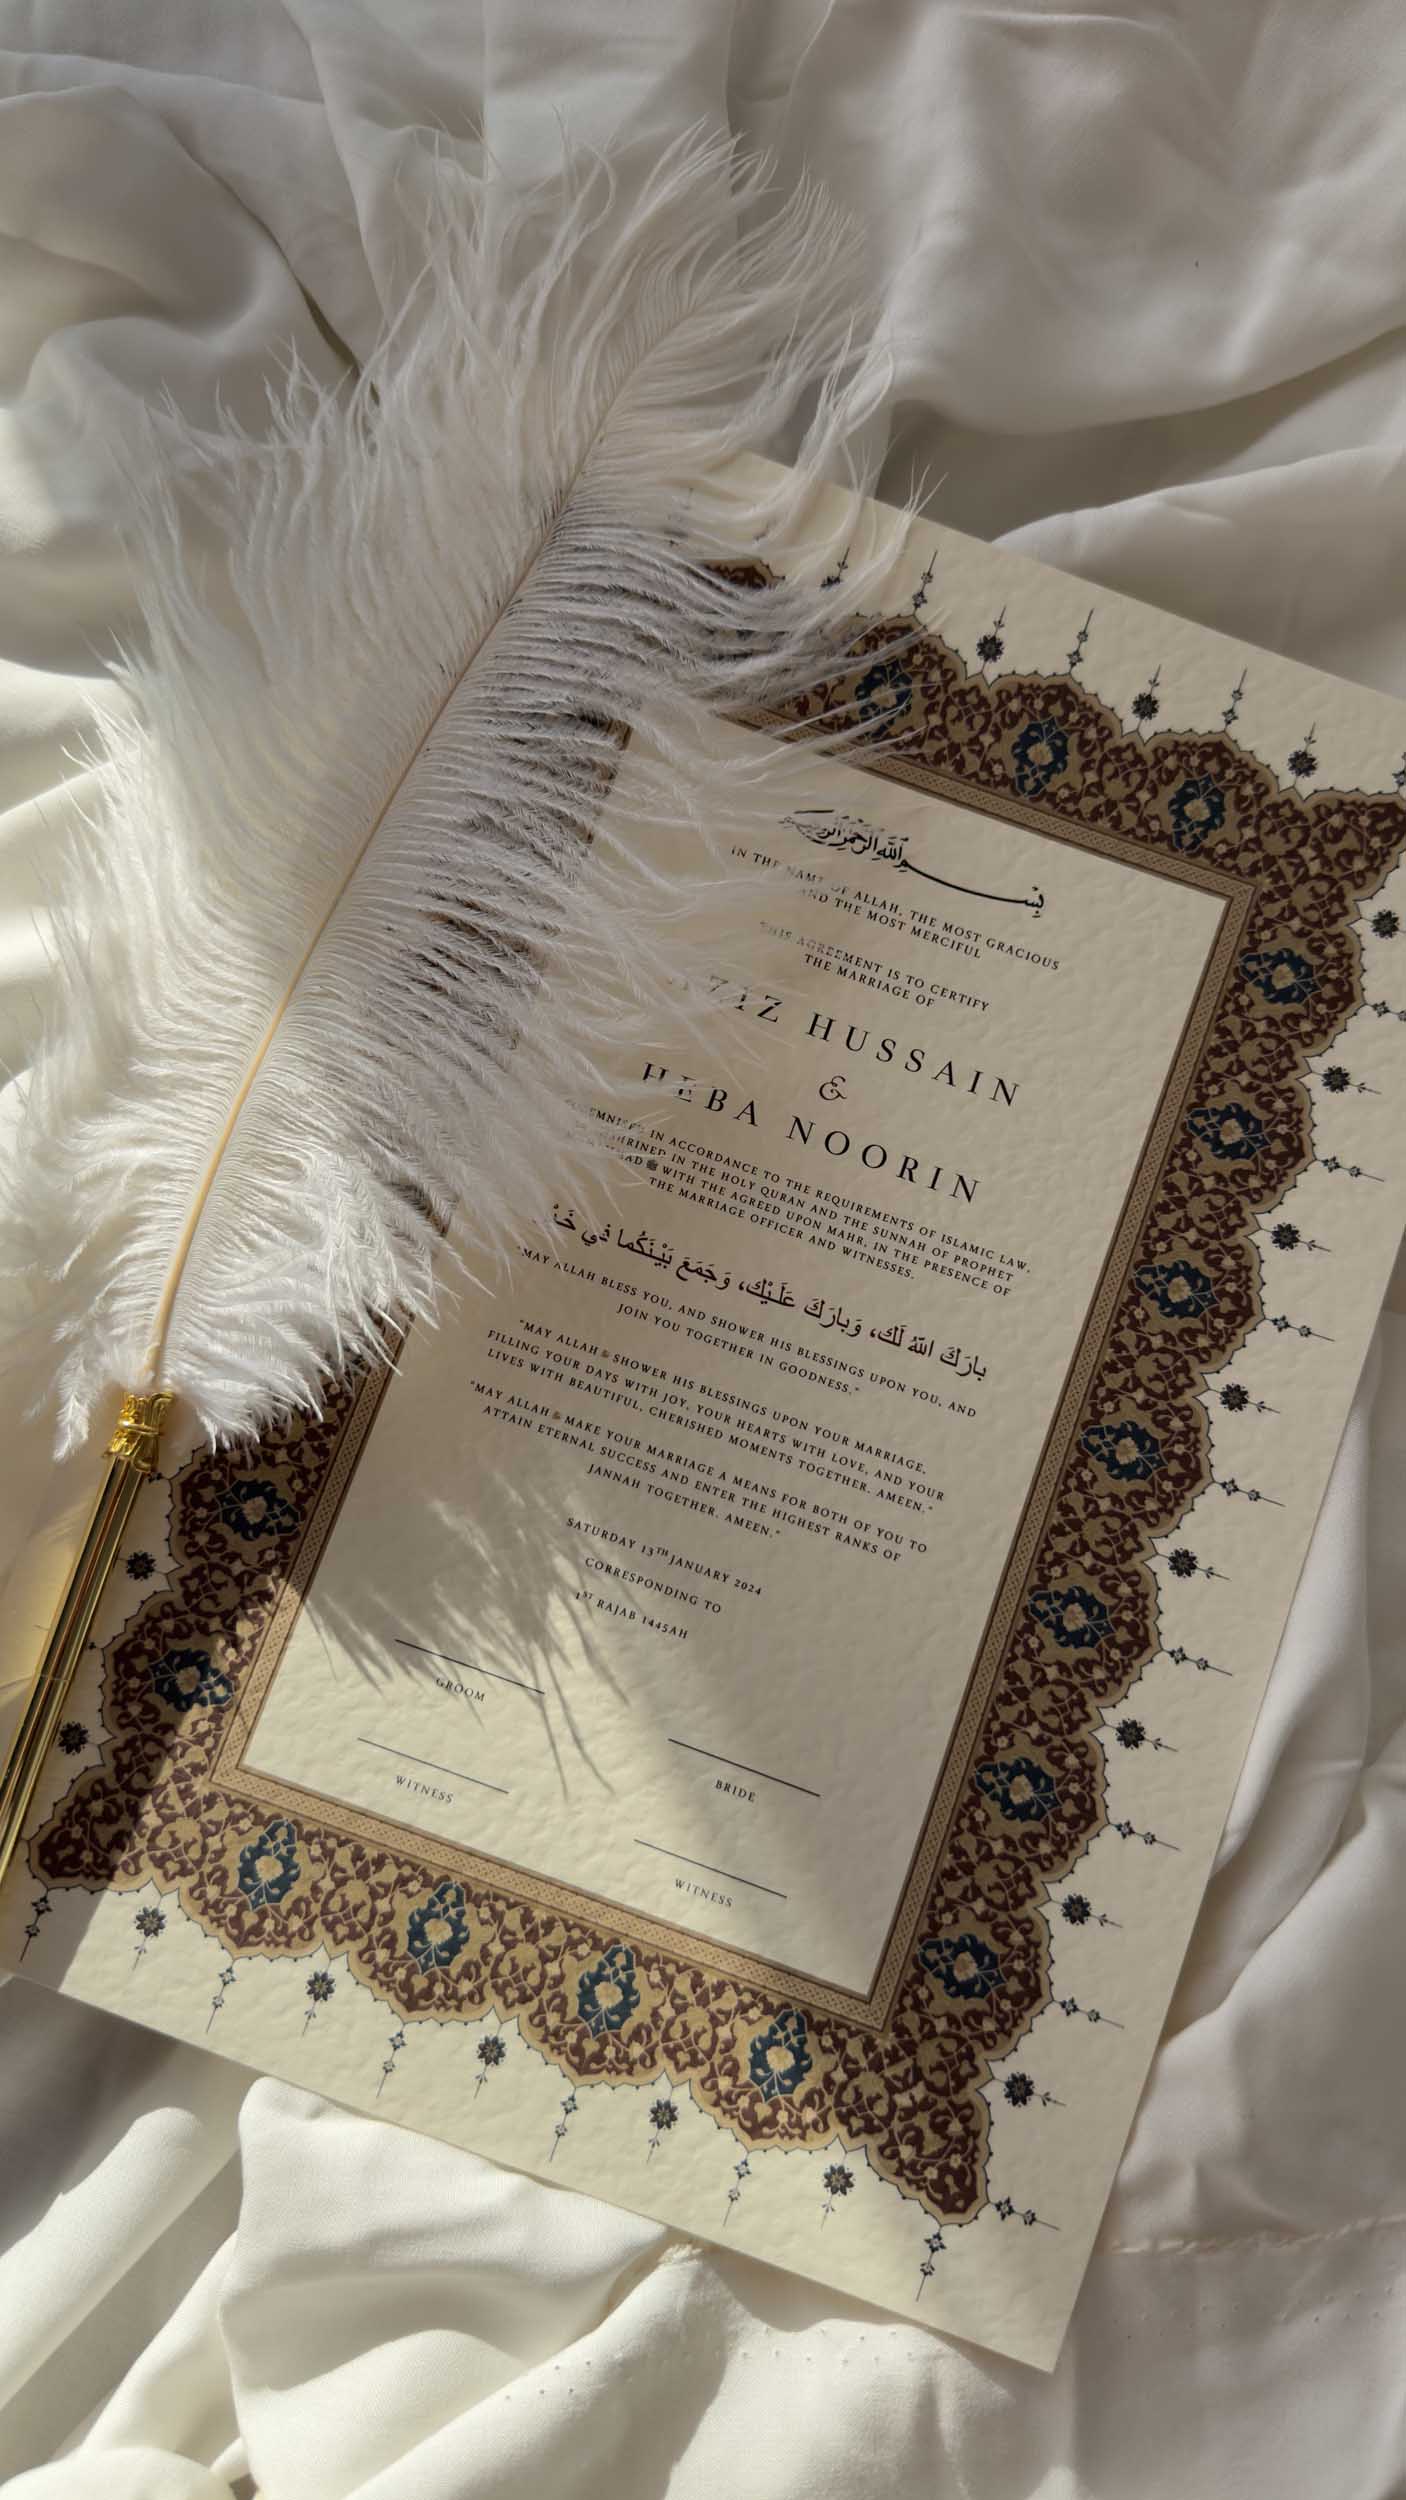 بِسْمِ اللهِ الرَّحْمٰنِ الرَّحِيْمِ
IN THE NAME OF ALLAH, THE MOST GRACIOUS
AND THE MOST MERCIFUL
THIS AGREEMENT IS TO CERTIFY
THE MARRIAGE OF
HUSSAIN
&
HEBA NOORIN
IN ACCORDANCE TO THE REQUIREMENTS OF ISLAMIC LAW,
IN THE HOLY QURAN AND THE SUNNAH OF PROPHET
ﷺ WITH THE AGREED UPON MAHR, IN THE PRESENCE OF
THE MARRIAGE OFFICER AND WITNESSES.
بارَكَ اللهُ لَك، وَبارَكَ عَلَـيْك، وَجَمَعَ بَيْـنَكُما في
"MAY ALLAH BLESS YOU, AND SHOWER HIS BLESSINGS UPON YOU, AND
JOIN YOU TOGETHER IN GOODNESS."
"MAY ALLAH SHOWER HIS BLESSINGS UPON YOUR MARRIAGE,
FILLING YOUR DAYS WITH JOY, YOUR HEARTS WITH LOVE, AND YOUR
LIVES WITH BEAUTIFUL, CHERISHED MOMENTS TOGETHER. AMEEN."
"MAY ALLAH MAKE YOUR MARRIAGE A MEANS FOR BOTH OF YOU TO
ATTAIN ETERNAL SUCCESS AND ENTER THE HIGHEST RANKS OF
JANNAH TOGETHER. AMEEN."
SATURDAY 13TH JANUARY 2024
CORRESPONDING TO
1ST RAJAB 1445AH
GROOM
BRIDE
WITNESS
WITNESS